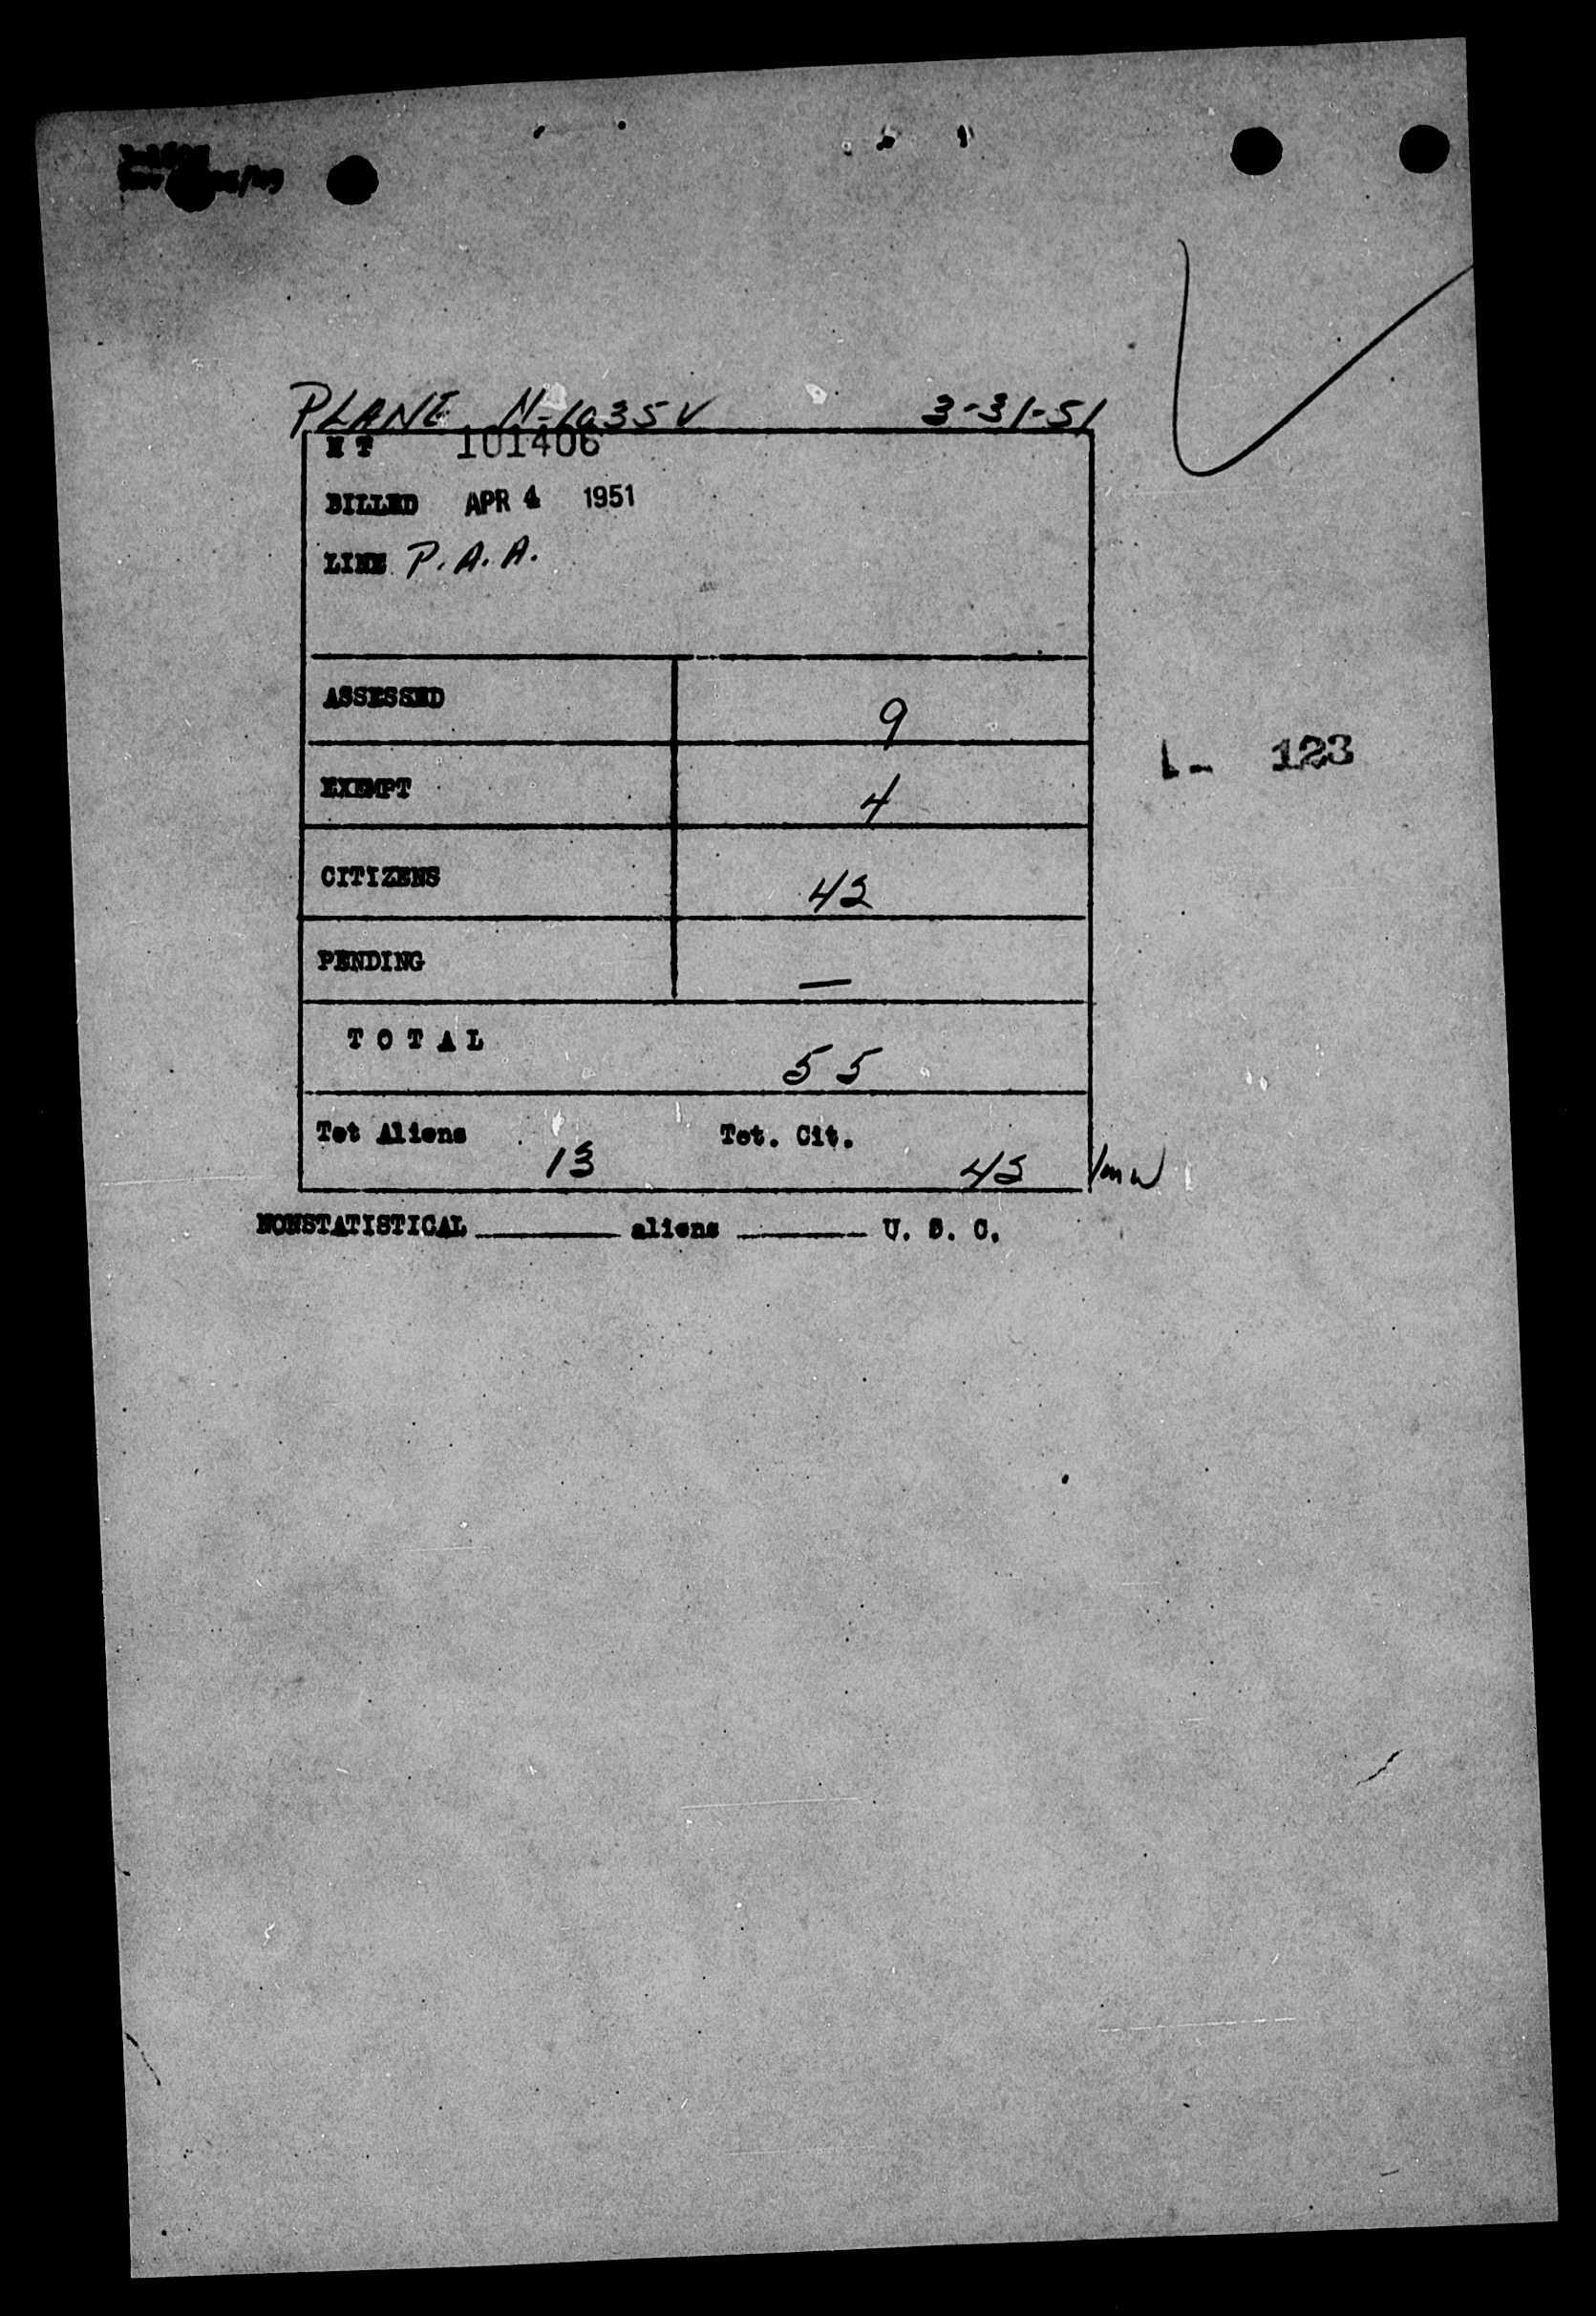 PLANE N-1035V 3-31-51
H T 101406
BILLED APR 4 1951
LINE P.A.A.
ASSESSED 9
EXEMPT 4
1- 123
CITIZENS 42
PENDING —
TOTAL 55
Tot Aliens 13 Tot. Cit. 42 /mw
NONSTATISTICAL ________ aliens ________ U. S. C.